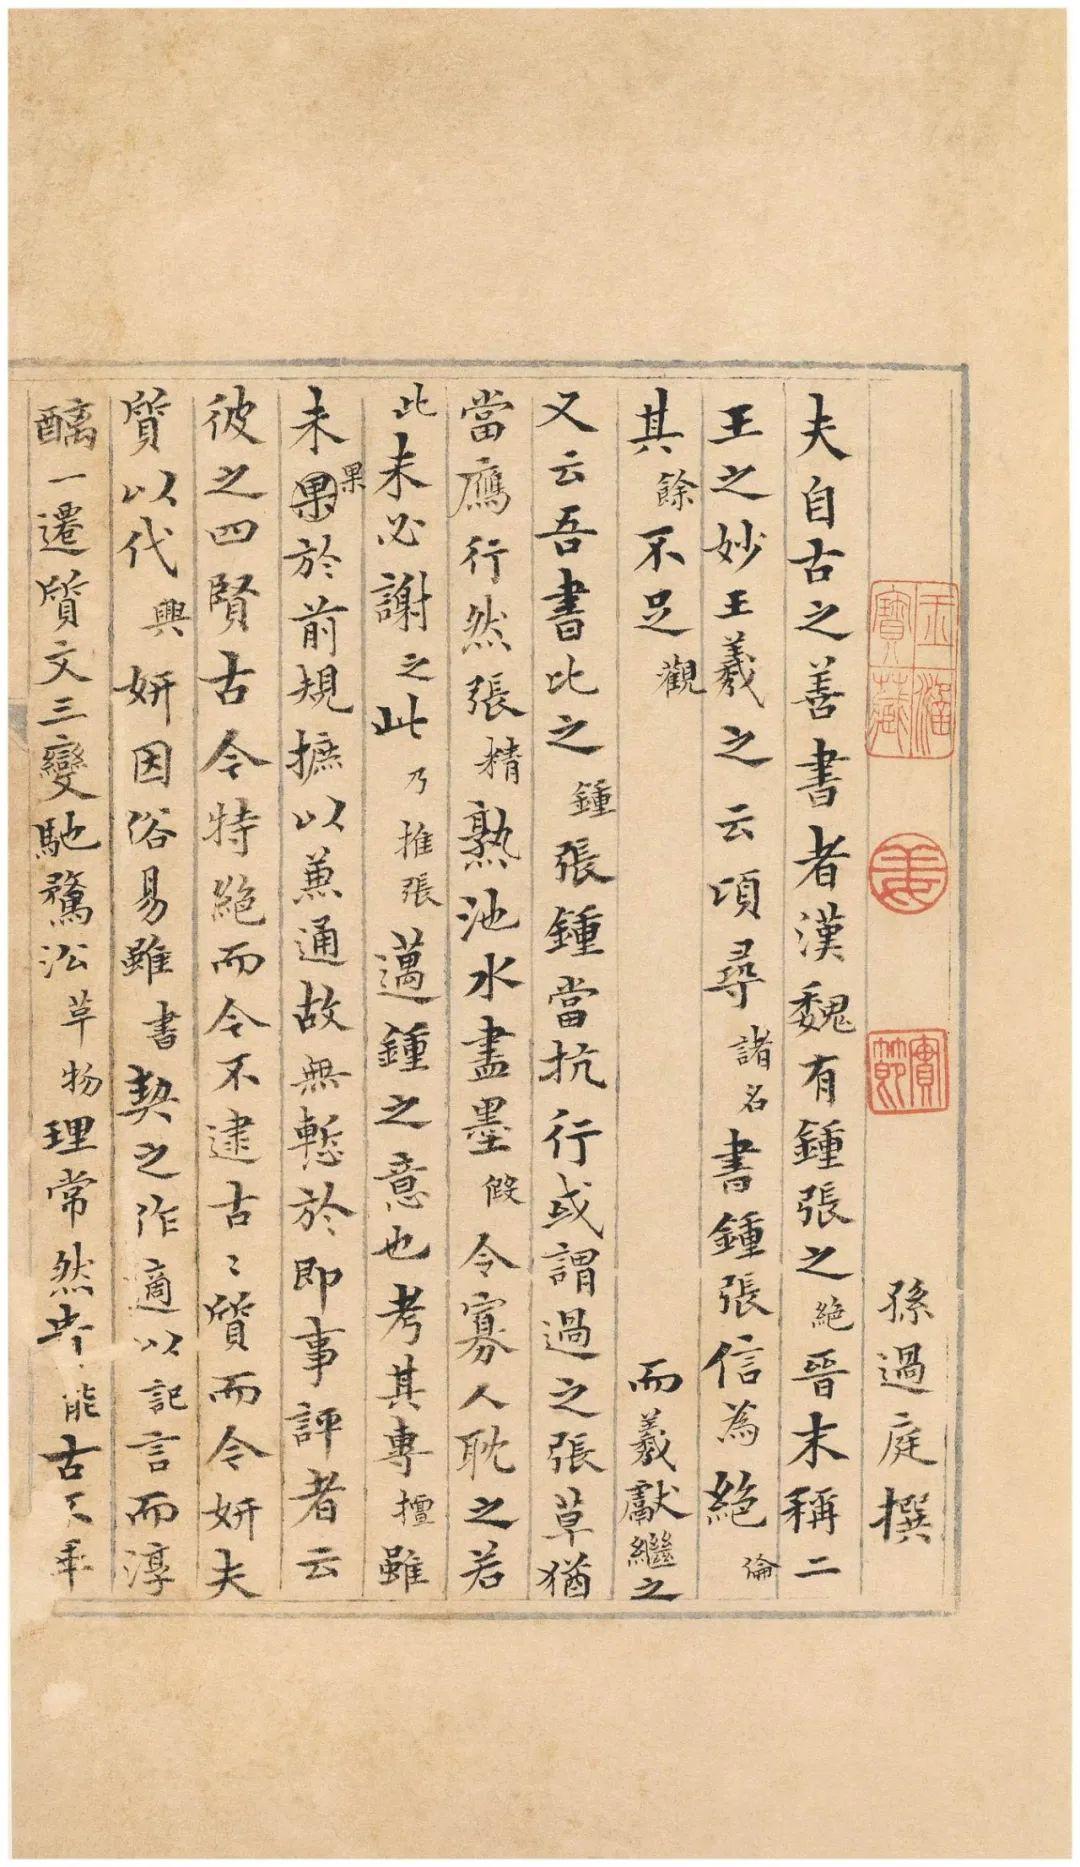 孫過庭撰
夫自古之善書者漢魏有鍾張之絶晉末稱二
王之妙王羲之云頃尋諸名書鍾張信為絶倫
其餘不足觀而羲獻繼之
又云吾書比之鍾張鍾當抗行或謂過之張草猶
當鴈行然張精熟池水盡墨假令寡人耽之若
此未必謝之此乃推張邁鍾之意也考其專擅雖
未果果於前規摭以兼通故無慙於即事評者云
彼之四賢古今特絶而今不逮古〻質而今妍夫
質以代興妍因俗易雖書契之作適以記言而淳
醨一遷質文三變馳騖沿革物理常然貴能古不乖